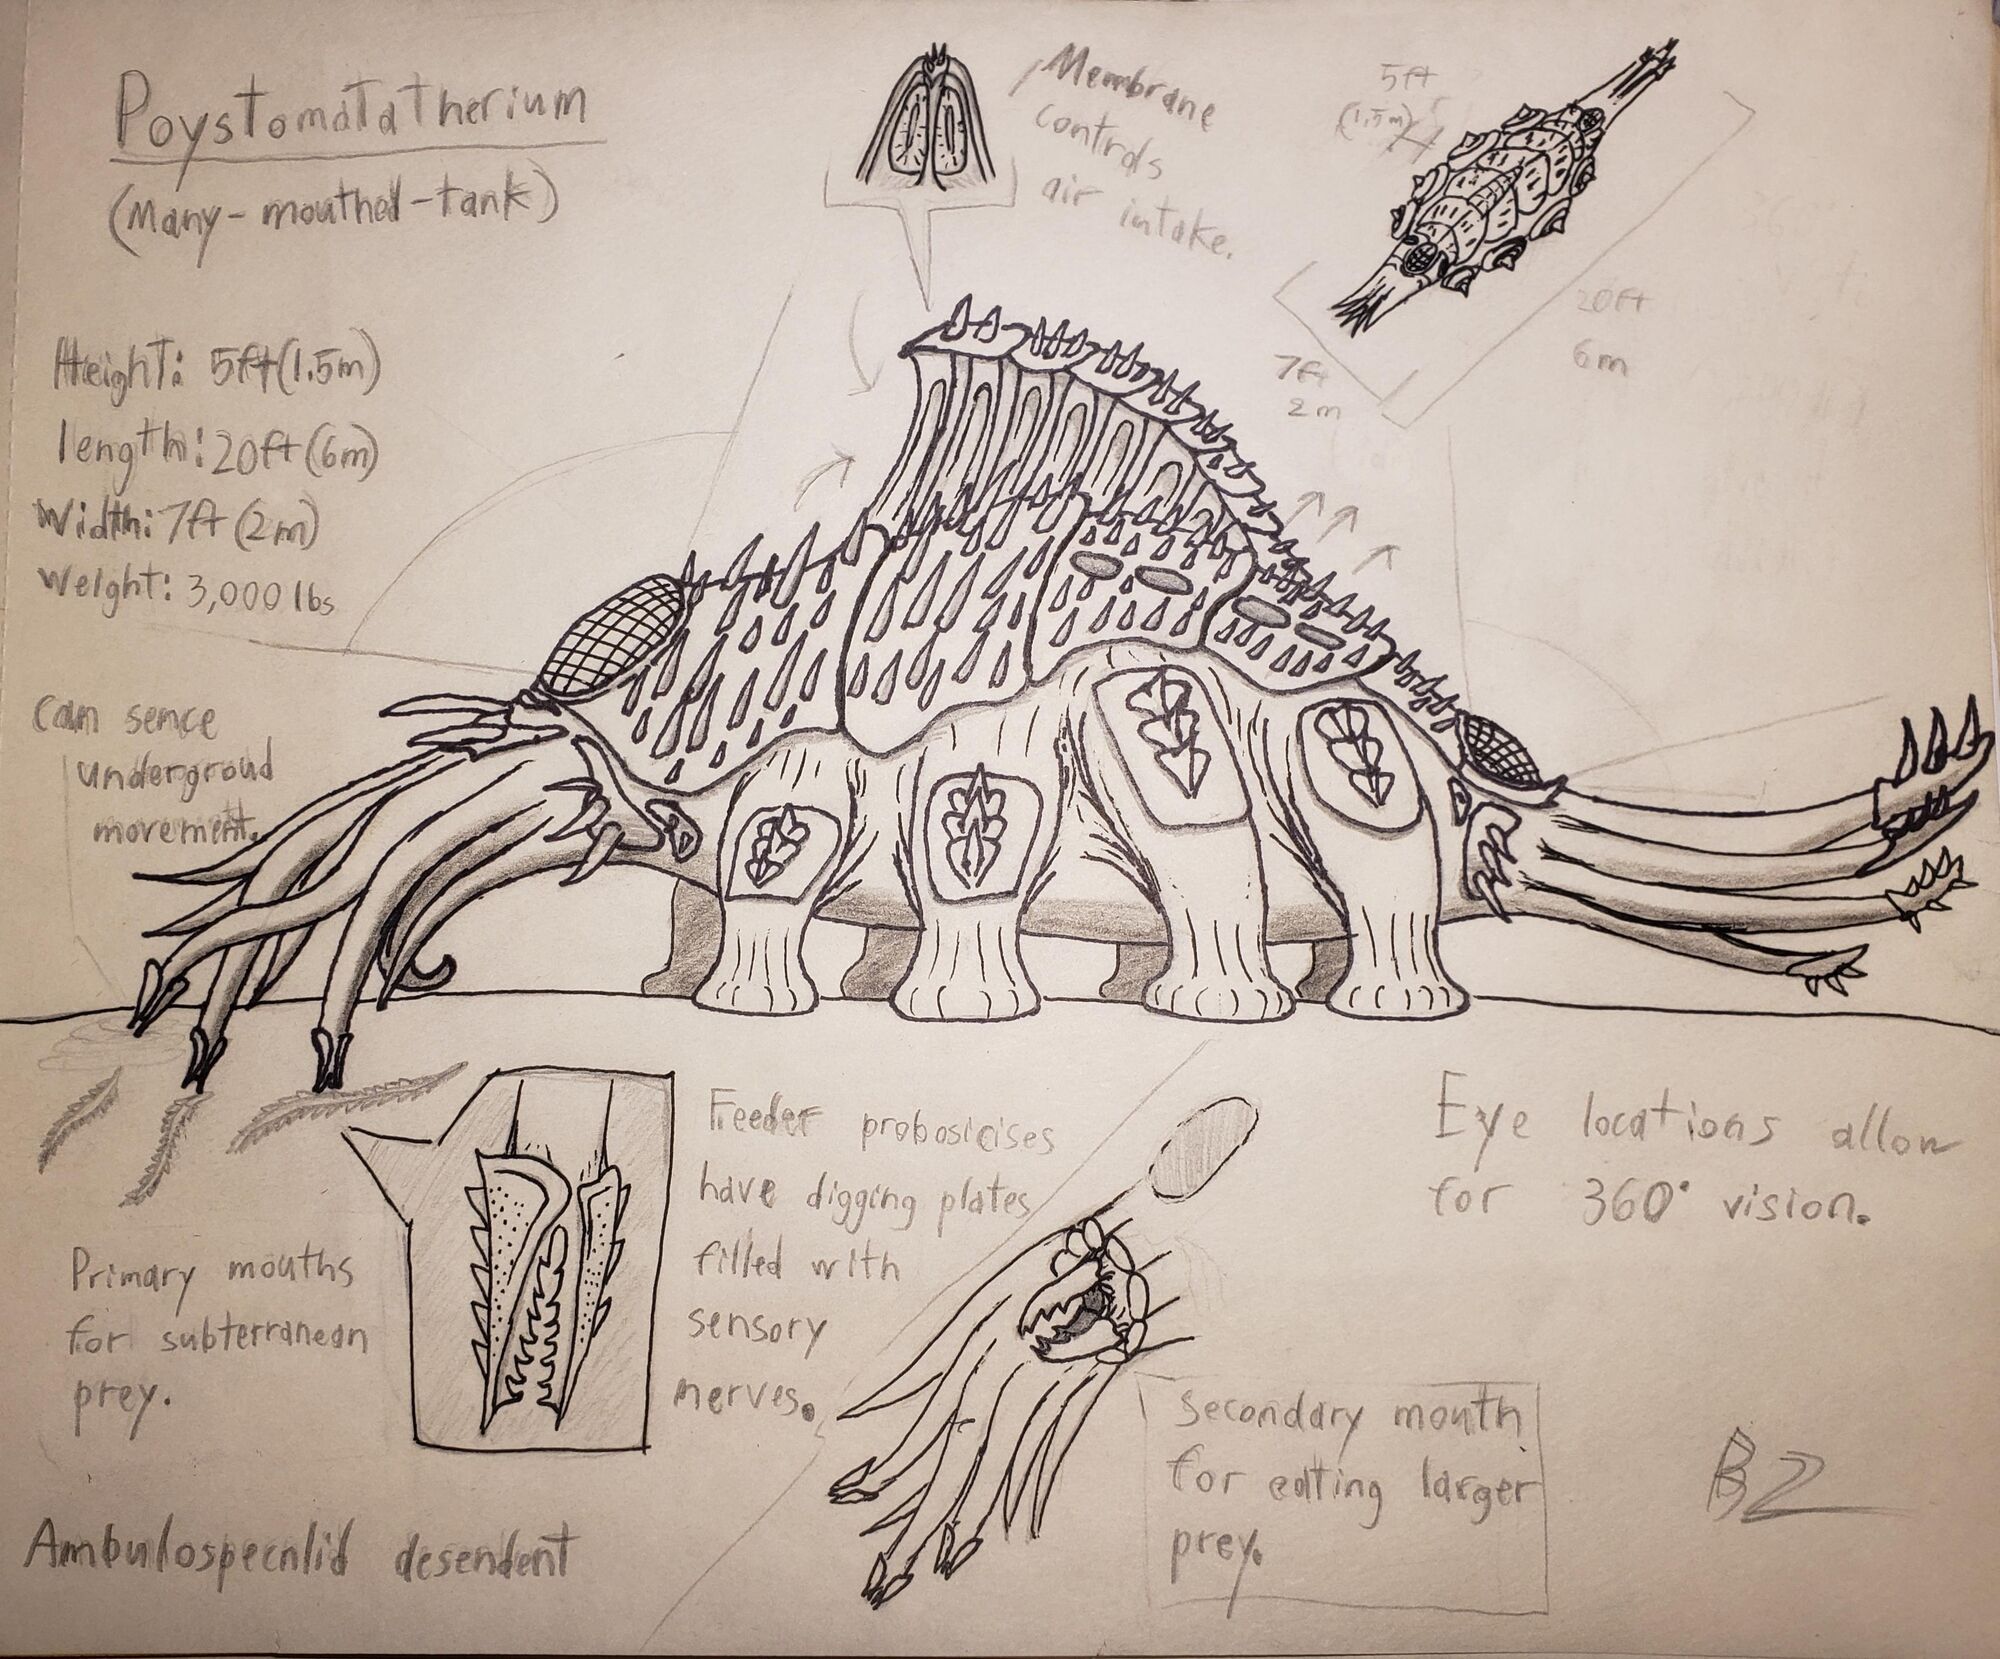 Poystomatatherium
(Many-mouthed-tank)
Height: 5ft(1.5m)
length: 20ft(6m)
Width: 7ft(2m)
Weight: 3,000 lbs
Membrane
controls
air intake.
5ft
(1.5m)
20ft
6m
7ft
2m
Can sence
undergroud
movement.
Primary mouths
for subterranean
prey.
Feeder probosicises
have digging plates
filled with
sensory
nerves.
Eye locations allow
for 360° vision.
Secondary mouth
for eating larger
prey.
desendent
BZ